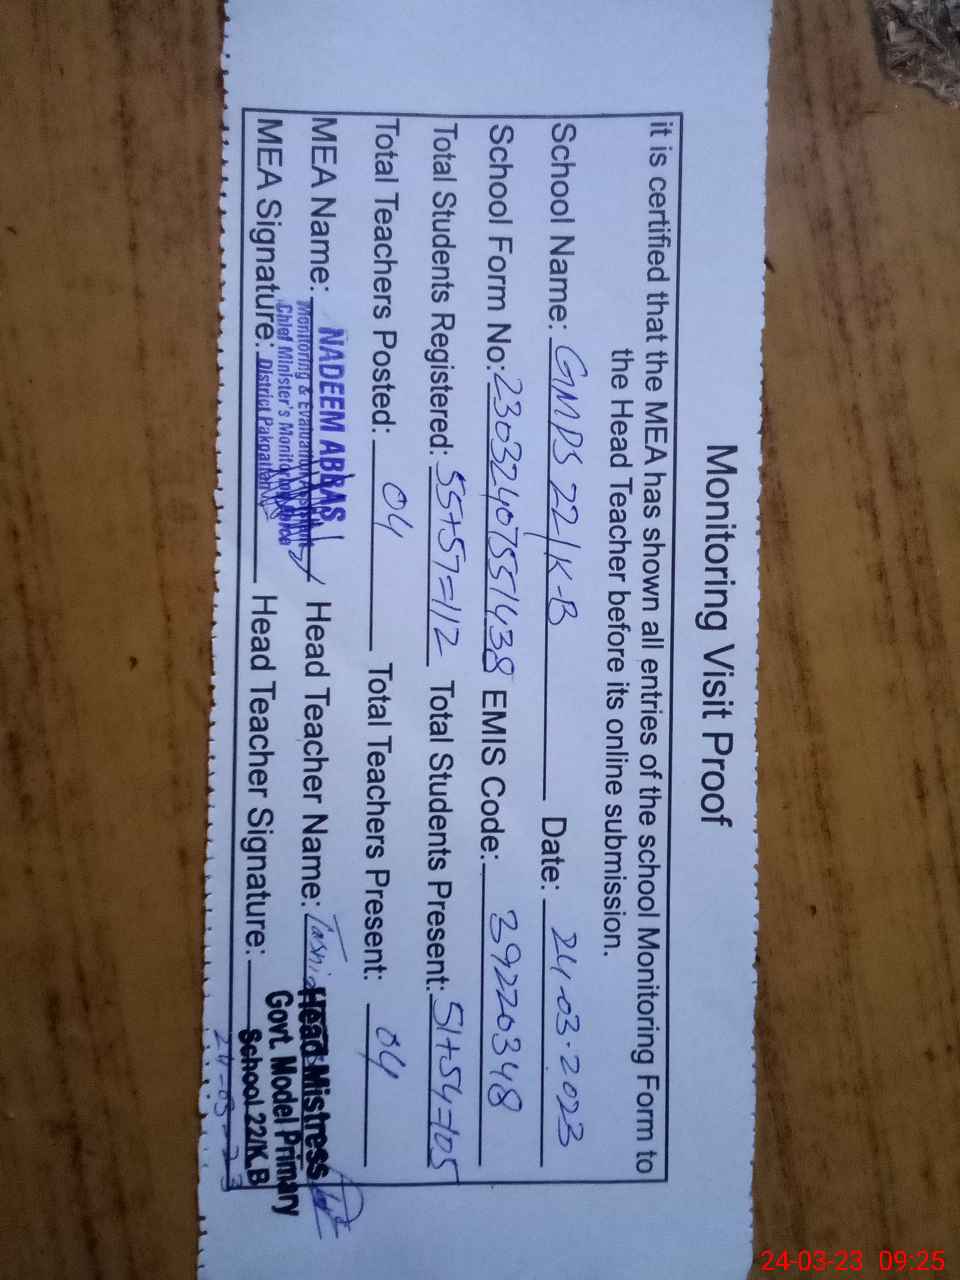 Monitoring Visit Proof
it is certified that the MEA has shown all entries of the school Monitoring Form to
the Head Teacher before its online submission.
School Name: GMPS 22/K-B Date: 24-03-2023
School Form No: 23032407551438 EMIS Code: 39220348
Total Students Registered: 55+57=112 Total Students Present: 51+54=105
Total Teachers Posted: 04 Total Teachers Present: 04
MEA Name: NADEEM ABBAS Head Teacher Name:
Monitoring & Evaluation
Chief Minister's
MEA Signature: District Pakpattan Head Teacher Signature:
Head Mistress
Govt. Model Primary
School 22/K.B
24-03-23
24-03-23 09:25